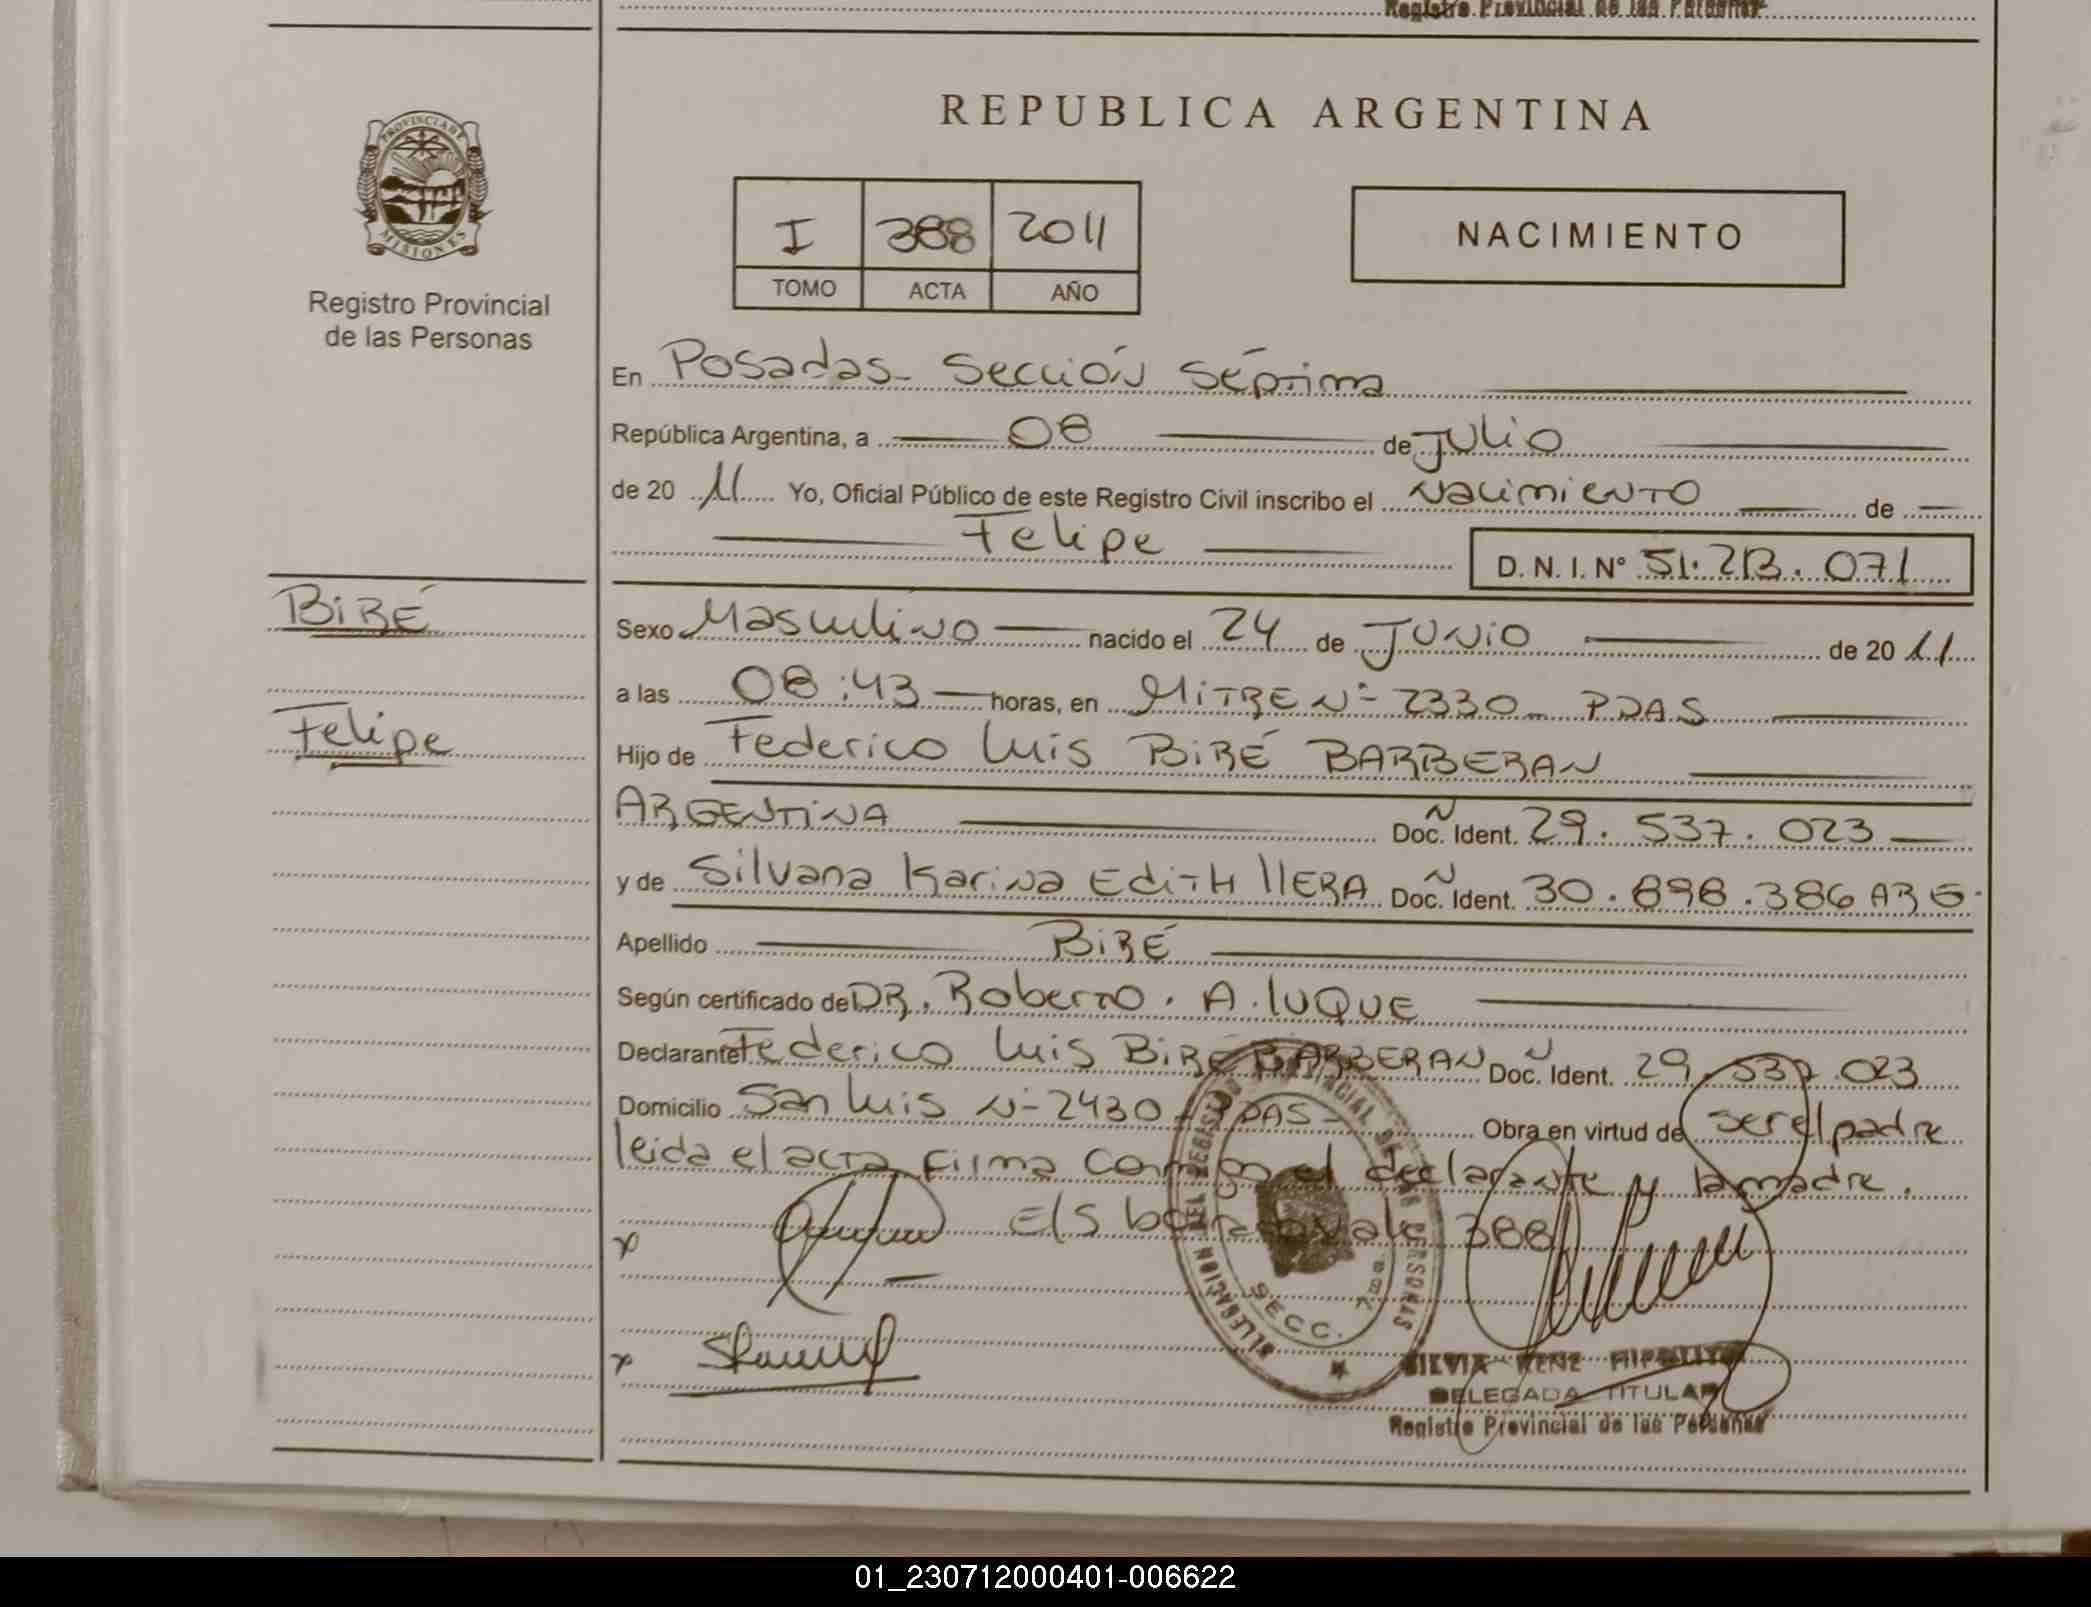 Registro Provincial de las Personas
PROVINCIA DE
MISIONES
Registro Provincial
de las Personas
REPUBLICA ARGENTINA
I 388 2011
TOMO ACTA AÑO
NACIMIENTO
En Posadas - Sección Séptima
República Argentina, a 08 de Julio
de 20 11 Yo, Oficial Público de este Registro Civil inscribo el Nacimiento de
Felipe
D. N. I. N° 51.213.071
BIRÉ
Felipe
Sexo Masculino nacido el 24 de Junio de 20 11
a las 08:43 horas, en MITRE N- 2330 - PDAS
Hijo de Federico Luis BIRÉ BARBERAN
ARGENTINA Doc. Ident. 29.537.023
y de Silvana Karina Edith LLERA Doc. Ident. 30.898.386 ARG.
Apellido BIRÉ
Según certificado de DR. Roberto. A. LUQUE
Declarante Federico Luis BIRÉ BARBERAN Doc. Ident. 29.537.023
Domicilio San Luis N- 2430 - PDAS - Obra en virtud de ser el padre
leida el acta firma conmigo el declarante y la madre.
E/S vale 388
DELEGACION DEL REGISTRO PROVINCIAL DE LAS PERSONAS
SECC. 7ma.
SILVIA RENE
DELEGADA TITULAR
Registro Provincial de las Personas
01_230712000401-006622